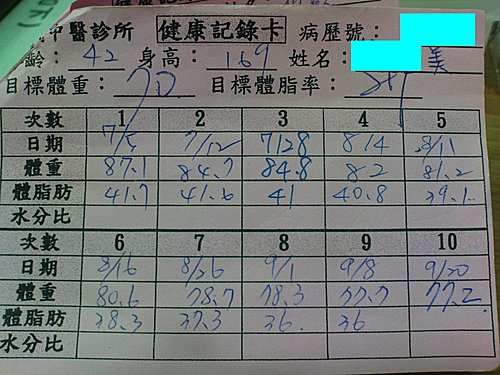 中醫診所 健康記錄卡 病歷號：
齡：42 身高：169 姓名： 美
目標體重：70 目標體脂率：
次數 1 2 3 4 5
日期 7/5 7/12 7/28 8/4 8/11
體重 87.1 84.7 84.8 82 81.2
體脂肪 41.7 41.6 41 40.8 39.1
水分比
次數 6 7 8 9 10
日期 8/16 8/26 9/1 9/8 9/20
體重 80.6 78.7 78.3 77.7 77.2
體脂肪 38.3 37.3 36. 36
水分比